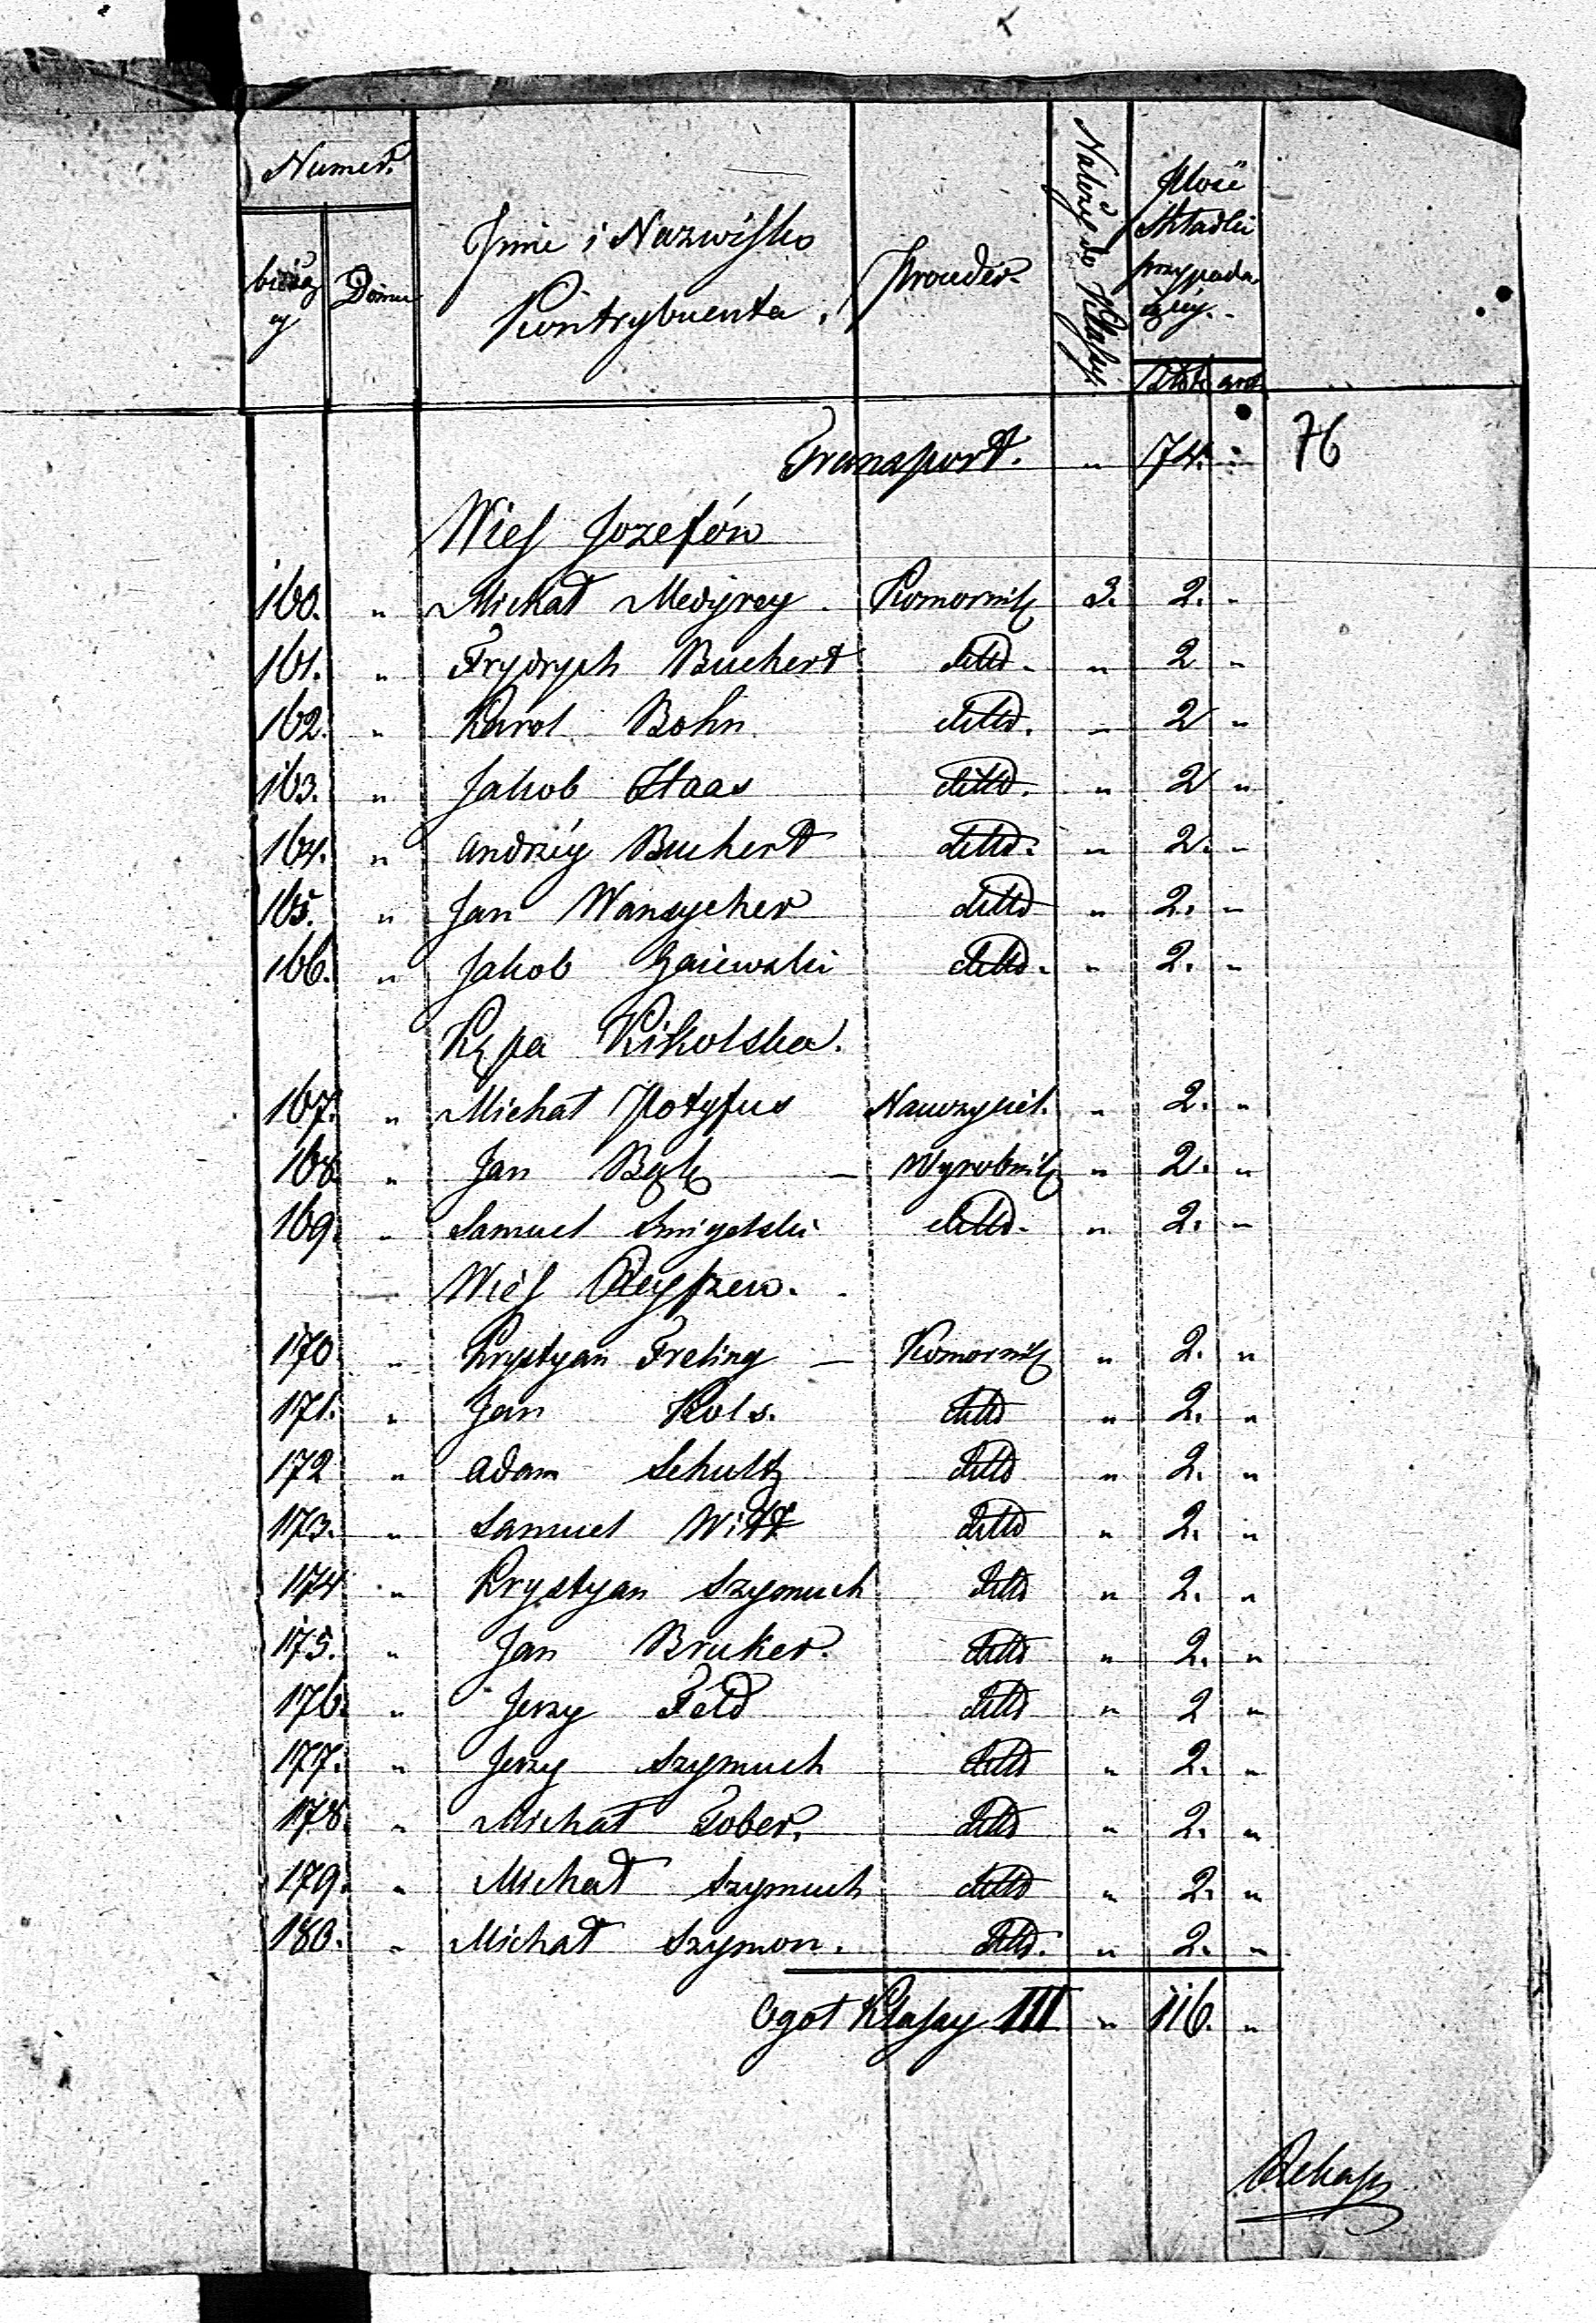 Numer.
bieżący
Domu
Jmie i Nazwisko
Kontrybuenta.
Należy do Klassy.
Jlość
Składki
przypada
iącéy.
Złot. gro.
Transport. " 74. "
76
Wieś Jozefów
160. " Michał Medyrey Komornik 3. 2. "
161. " Frydrych Buchert ditto. " 2 "
162. " Karol Bohn. ditto. " 2 "
163. " Jakob Haas ditto. " 2 "
164. " Andrzéy Buchert ditto. " 2. "
165. " Jan Wansycher ditto " 2. "
166. " Jakob Gaiewski ditto. " 2. "
Kępa Kikolska.
167. " Michał Potyfus Nauczyciel. " 2. "
168. " Jan Bąk — Wyrobnik " 2. "
169. " Samuel Smigelski ditto. " 2. "
Wieś
170 " Krystyan Freling — Komornik " 2. "
171. " Jan Kols. ditto " 2. "
172 " Adam Schultz ditto " 2. "
173. " Samuel Witt ditto " 2. "
174 " Krystyan Szymuch ditto " 2. "
175. " Jan Bruker. ditto " 2. "
176. " Jerzy Feld ditto " 2 "
177. " Jerzy Szymuch ditto " 2. "
178. " Michał Tober. ditto " 2. "
179. " Michał Szymuch ditto " 2. "
180. " Michał Szymon. ditto. " 2. "
Ogół Klassy III " 116. "